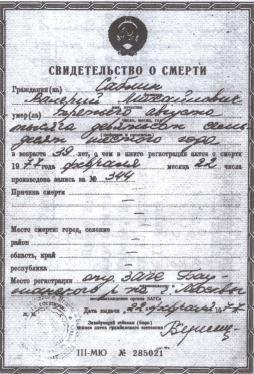 СВИДЕТЕЛЬСТВО О СМЕРТИ
Гражданин(ка)
Валерий Михайлович
умер(ла) третьего августа
тысяча девятьсот семь
десят шестого года
в возрасте 39 лет, о чем в книге регистрации актов о смерти
1977 года февраля месяца 22 числа
произведена запись за № 344
Причина смерти —
—
—
Место смерти: город, селение —
район —
область, край —
республика —
Место регистрации отд. ЗАГС Бау-
манского р-на г. Москвы
Дата выдачи 22 февраля 1977
Заведующий отделом (бюро)
записи актов гражданского состояния
III-МЮ № 285021